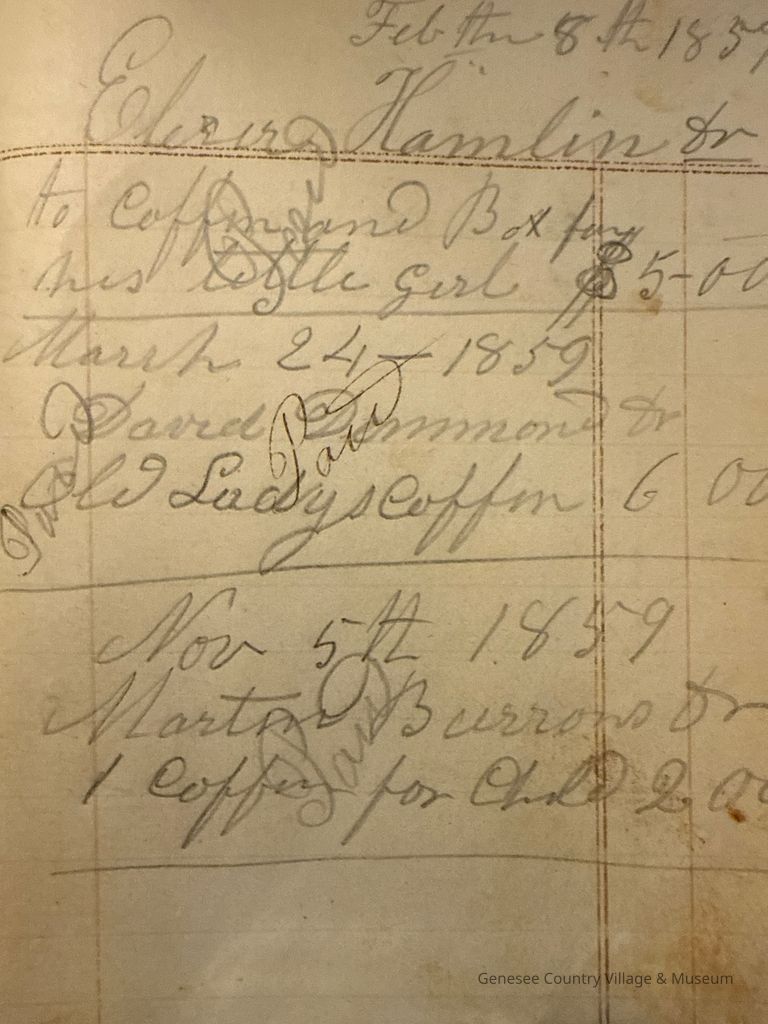 Feb the 8th 1859
Hamlin Dr
to Coffin and Box for
his little girl $5-00
Paid
March 24-1859
David Dimmond Dr
Old Ladys Coffin 6 00
Paid
Paid
Nov 5th 1859
Martin Burrows Dr
1 Coffin for Child 2 00
Paid
Genesee Country Village & Museum